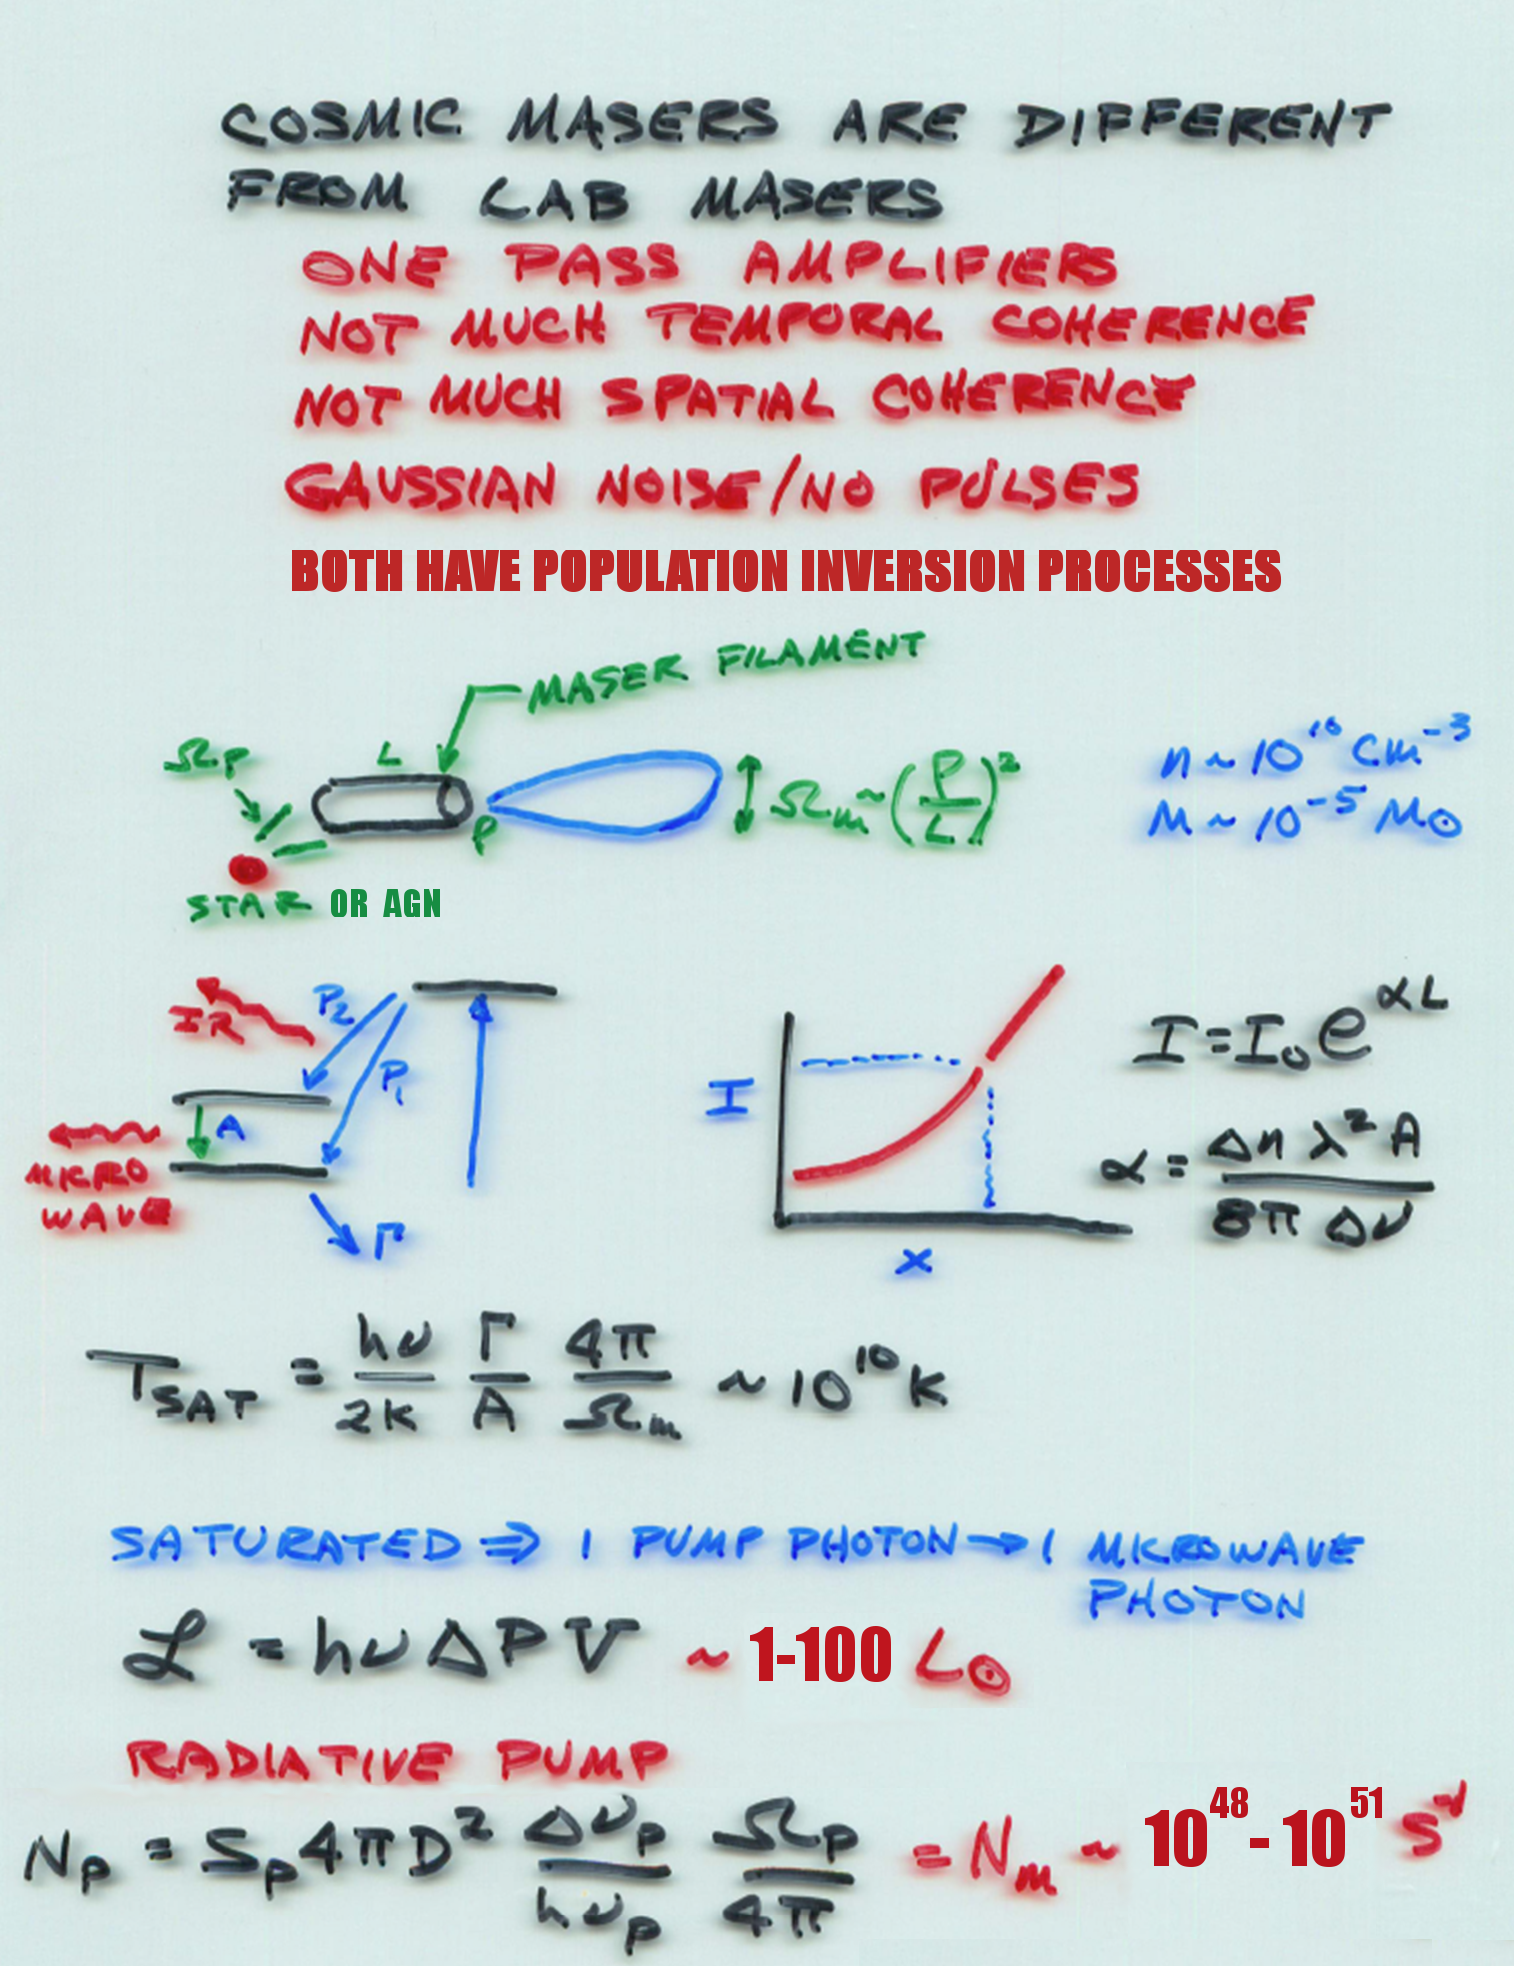 COSMIC MASERS ARE DIFFERENT
FROM LAB MASERS
ONE PASS AMPLIFIERS
NOT MUCH TEMPORAL COHERENCE
NOT MUCH SPATIAL COHERENCE
GAUSSIAN NOISE/NO PULSES
BOTH HAVE POPULATION INVERSION PROCESSES
MASER FILAMENT
Ωp
L
ρ
Ωm ~ (ρ/L)²
n ~ 10¹⁰ cm⁻³
M ~ 10⁻⁵ M⊙
STAR OR AGN
IR
P₂
P₁
A
MICRO
WAVE
Γ
I
x
I = I₀e^αL
α = Δn λ² A / 8π Δν
T_SAT = hν/2k Γ/A 4π/Ωm ~ 10¹⁰ K
SATURATED ⇒ 1 PUMP PHOTON → 1 MICROWAVE
PHOTON
ℒ = hν ΔP V ~ 1-100 L⊙
RADIATIVE PUMP
Np = Sp 4πD² Δνp/hνp Ωp/4π = Nm ~ 10⁴⁸ - 10⁵¹ s⁻¹